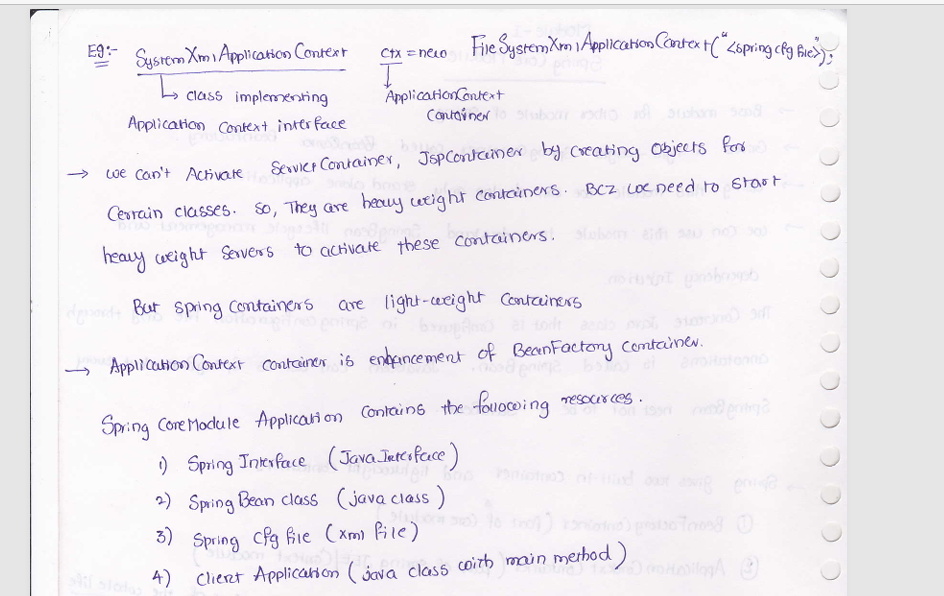 Eg:- SystemXmlApplicationContext ctx = new FileSystemXmlApplicationContext("<spring cfg file>");
↳ class implementing Application Context interface
↓ ApplicationContext Container
→ we can't Activate ServletContainer, JspContainer by creating objects for
Certain classes. So, They are heavy weight containers. Bcz we need to start
heavy weight servers to activate these containers.
But spring containers are light-weight containers
→ ApplicationContext container is enhancement of BeanFactory container.
Spring CoreModule Application contains the following resources.
1) Spring Interface (Java Interface)
2) Spring Bean class (java class)
3) Spring cfg file (xml file)
4) Client Application (java class with main method)